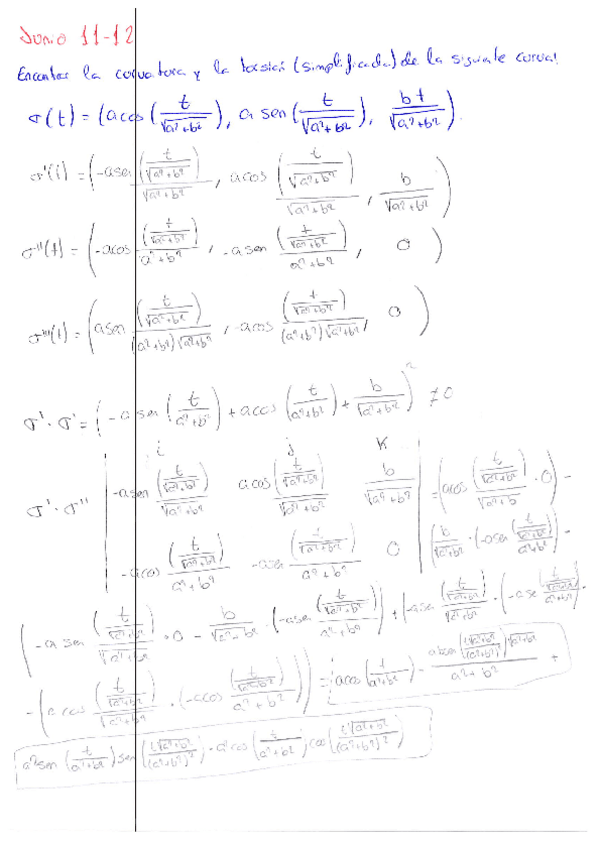 Junio 11-12
Encontrar la curvatura y la torsión (simplificada) de la siguiente curva:
σ(t) = (a cos (t/√(a²+b²)), a sen (t/√(a²+b²)), bt/√(a²+b²)).
σ'(t) = (-a sen (t/√(a²+b²))/√(a²+b²), a cos (t/√(a²+b²))/√(a²+b²), b/√(a²+b²))
σ''(t) = (-a cos (t/√(a²+b²))/a²+b², -a sen (t/√(a²+b²))/a²+b², 0)
σ'''(t) = (a sen (t/√(a²+b²))/(a²+b²)√(a²+b²), -a cos (t/√(a²+b²))/(a²+b²)√(a²+b²), 0)
σ' · σ' = (-a sen (t/a²+b²) + a cos (t/a²+b²) + b/√(a²+b²))² ≠ 0
i j k
σ' · σ'' | -a sen (t/√(a²+b²))/√(a²+b²) a cos (t/√(a²+b²))/√(a²+b²) b/√(a²+b²) | = (a cos (t/√(a²+b²))/√(a²+b · 0) -
-a cos (t/√(a²+b²))/a²+b² -a sen (t/√(a²+b²))/a²+b² 0 | (b/√(a²+b²) · (-a sen (t/√(a²+b²))/a²+b²) -
(-a sen (t/√(a²+b²))/√(a²+b²) · 0 - b/√(a²+b²) (-a sen (t/√(a²+b²))/a²+b²)) + (-a sen (t/√(a²+b²))/√(a²+b²) · (-a se
- (a cos (t/√(a²+b²))/√(a²+b²) · (-a cos (t/√(a²+b²))/a²+b²)) = a cos (t/a²+b²) - /a²+b² +
a² sen (t/a²+b²) sen (t√(a²+b²)/(a²+b²)²) - a² cos (t/a²+b²) cos (t√(a²+b²)/(a²+b²)²)